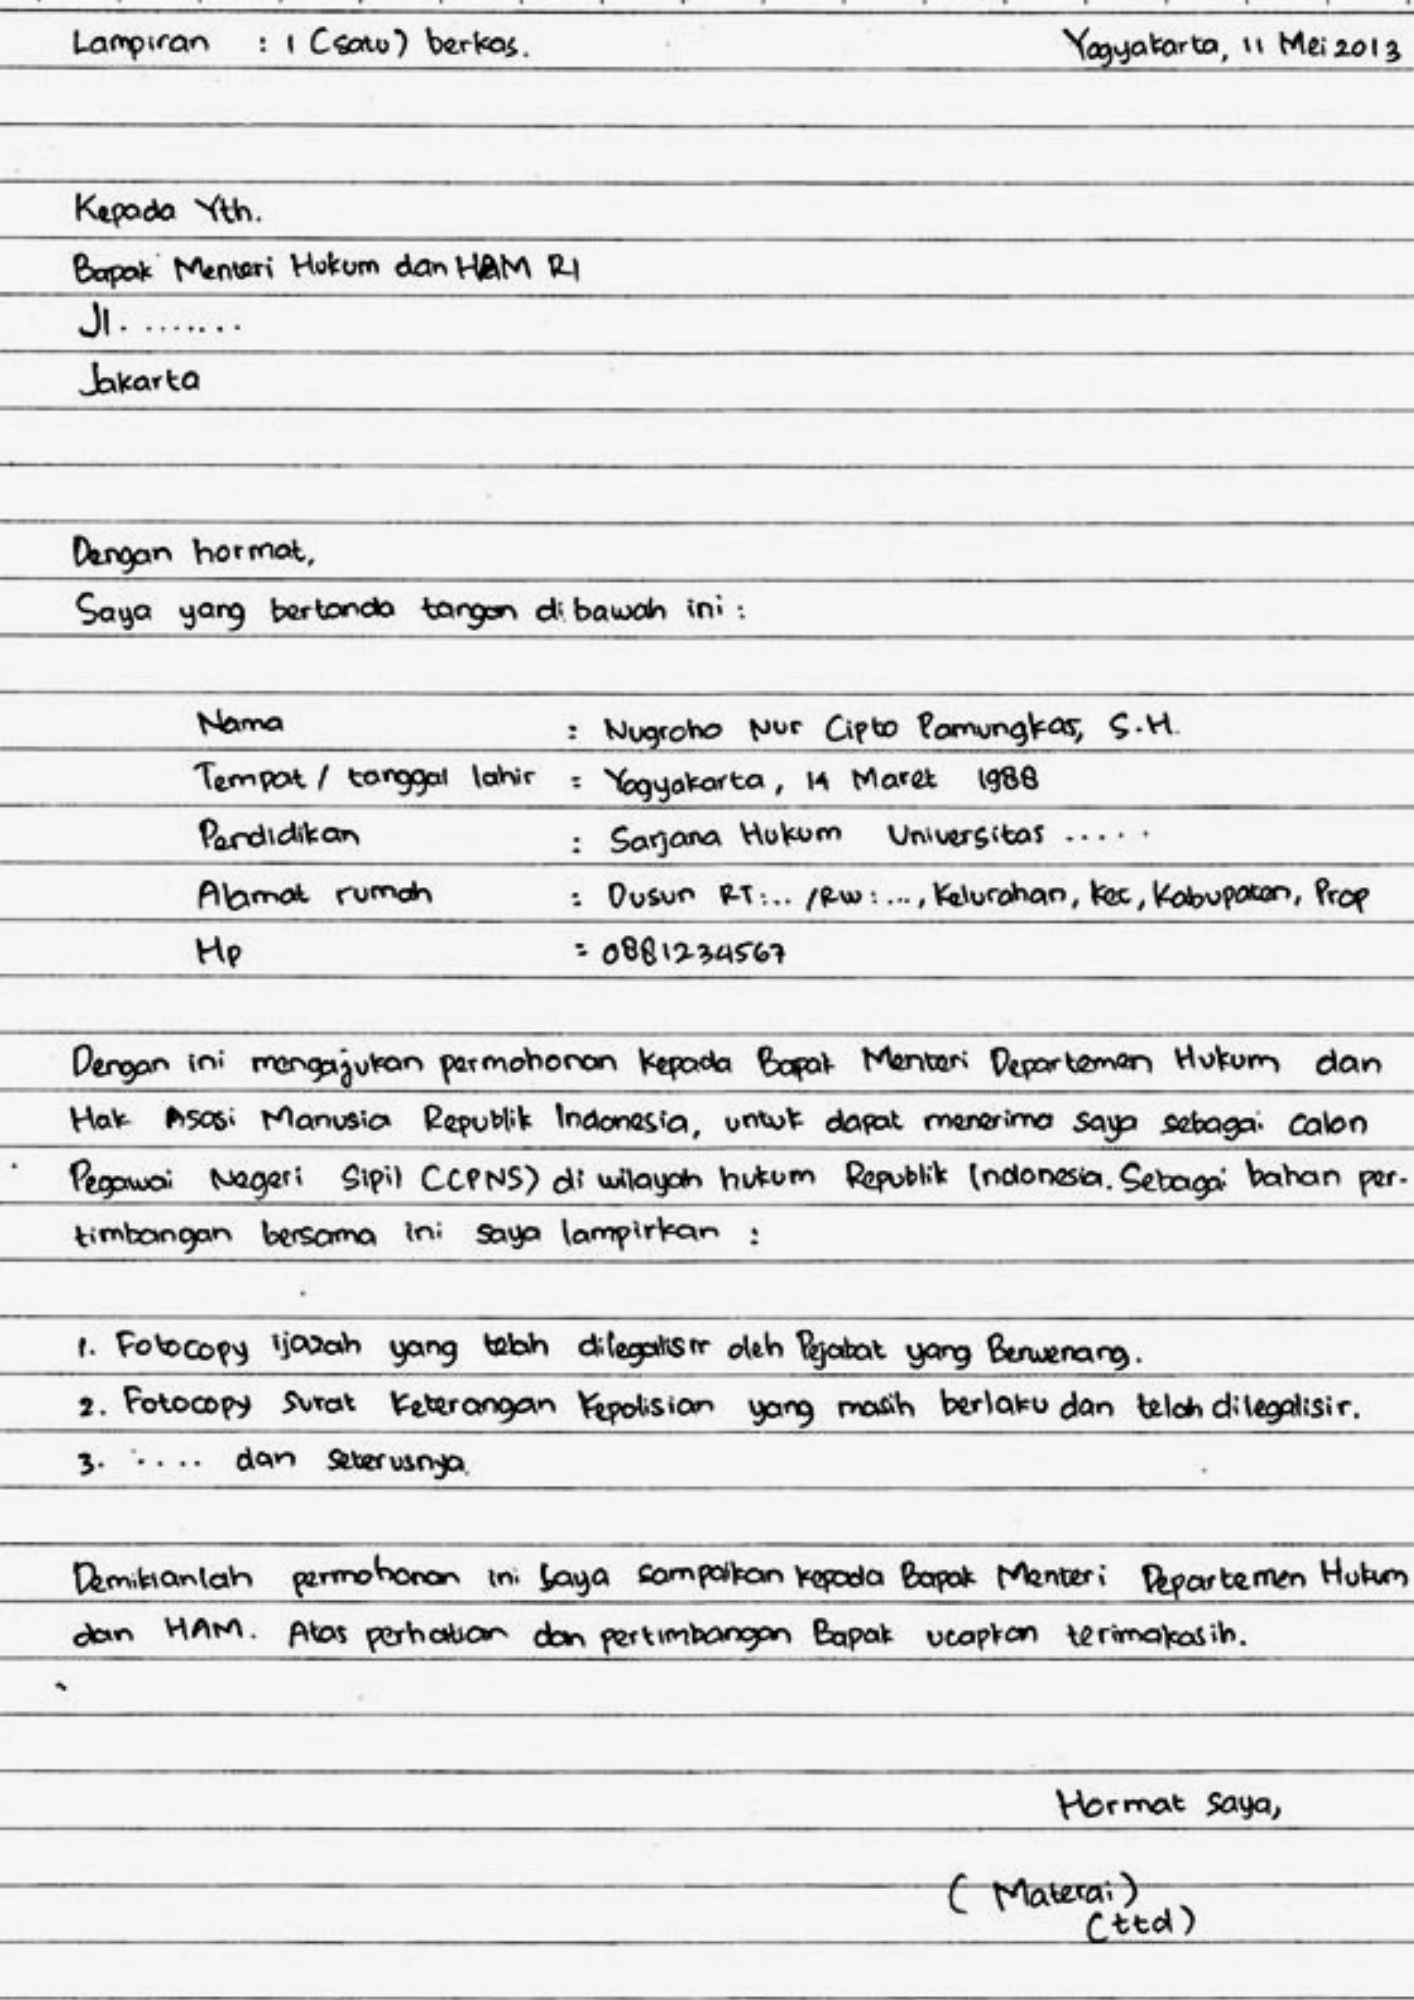 Lampiran : 1 (satu) berkas. Yogyakarta, 11 Mei 2013
Kepada Yth.
Bapak Menteri Hukum dan HAM RI
Jl. ........
Jakarta
Dengan hormat,
Saya yang bertanda tangan dibawah ini :
Nama : Nugroho Nur Cipto Pamungkas, S.H.
Tempat / tanggal lahir : Yogyakarta, 14 Maret 1988
Pendidikan : Sarjana Hukum Universitas .....
Alamat rumah : Dusun RT:.. /RW:..., Kelurahan, Kec, Kabupaten, Prop
Hp : 0881234567
Dengan ini mengajukan permohonan kepada Bapak Menteri Departemen Hukum dan
Hak Asasi Manusia Republik Indonesia, untuk dapat menerima saya sebagai calon
Pegawai Negeri Sipil (CPNS) di wilayah hukum Republik Indonesia. Sebagai bahan per-
timbangan bersama ini saya lampirkan :
1. Fotocopy ijazah yang telah dilegalisir oleh Pejabat yang Berwenang.
2. Fotocopy Surat Keterangan Kepolisian yang masih berlaku dan telah dilegalisir.
3. ..... dan seterusnya.
Demikianlah permohonan ini saya sampaikan kepada Bapak Menteri Departemen Hukum
dan HAM. Atas perhatian dan pertimbangan Bapak ucapkan terimakasih.
Hormat saya,
( Materai )
(ttd)